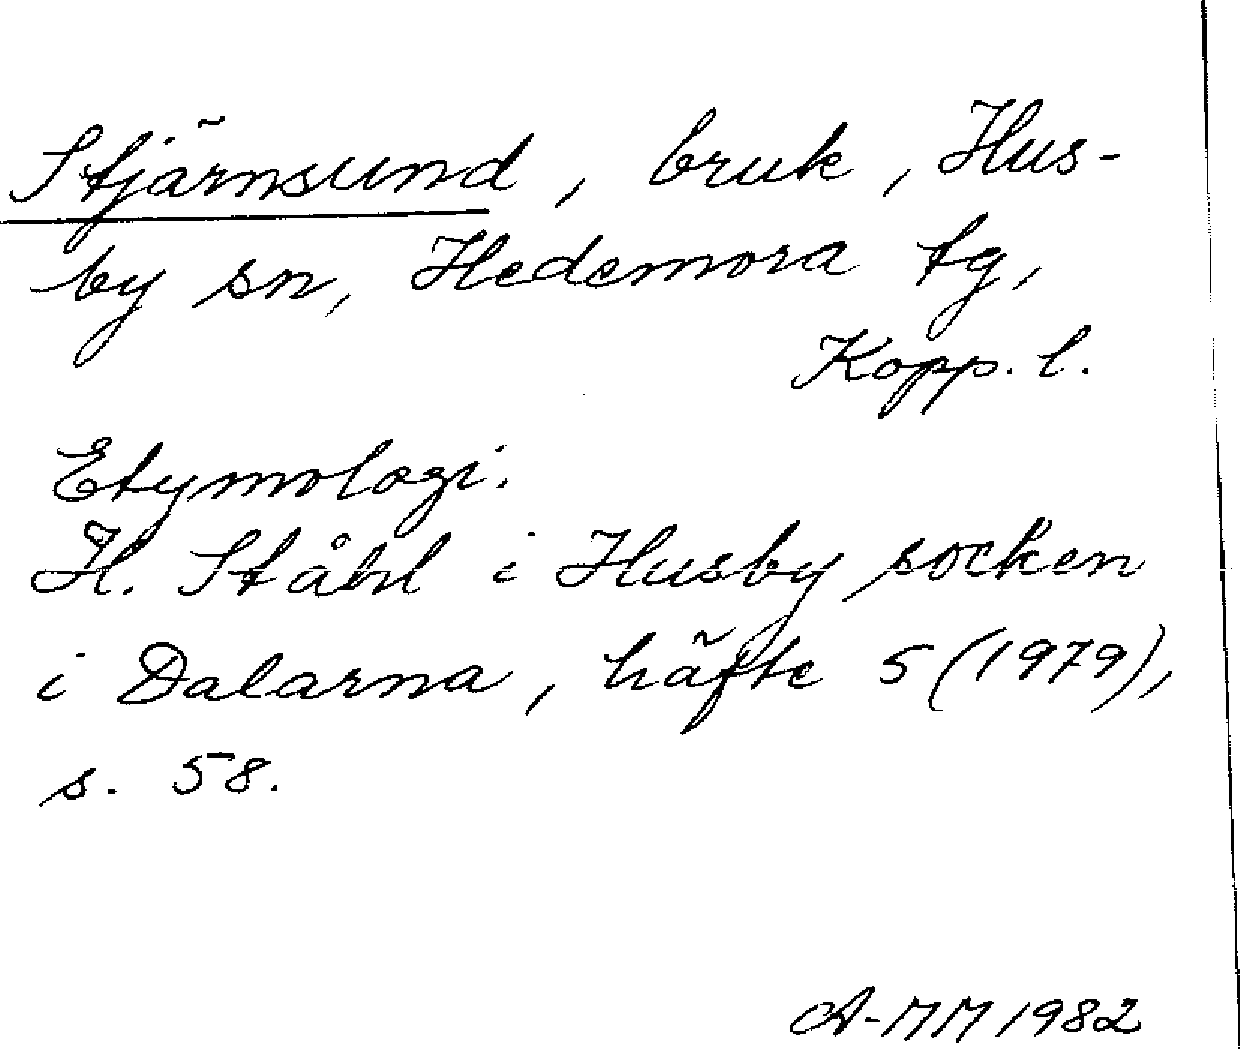 Stjärnsund, bruk, Hus-
by sn, Hedemora tg,
Kopp. l.
Etymologi.
H. Ståhl i Husby socken
i Dalarna, häfte 5 (1979),
s. 58.
A-MM 1982